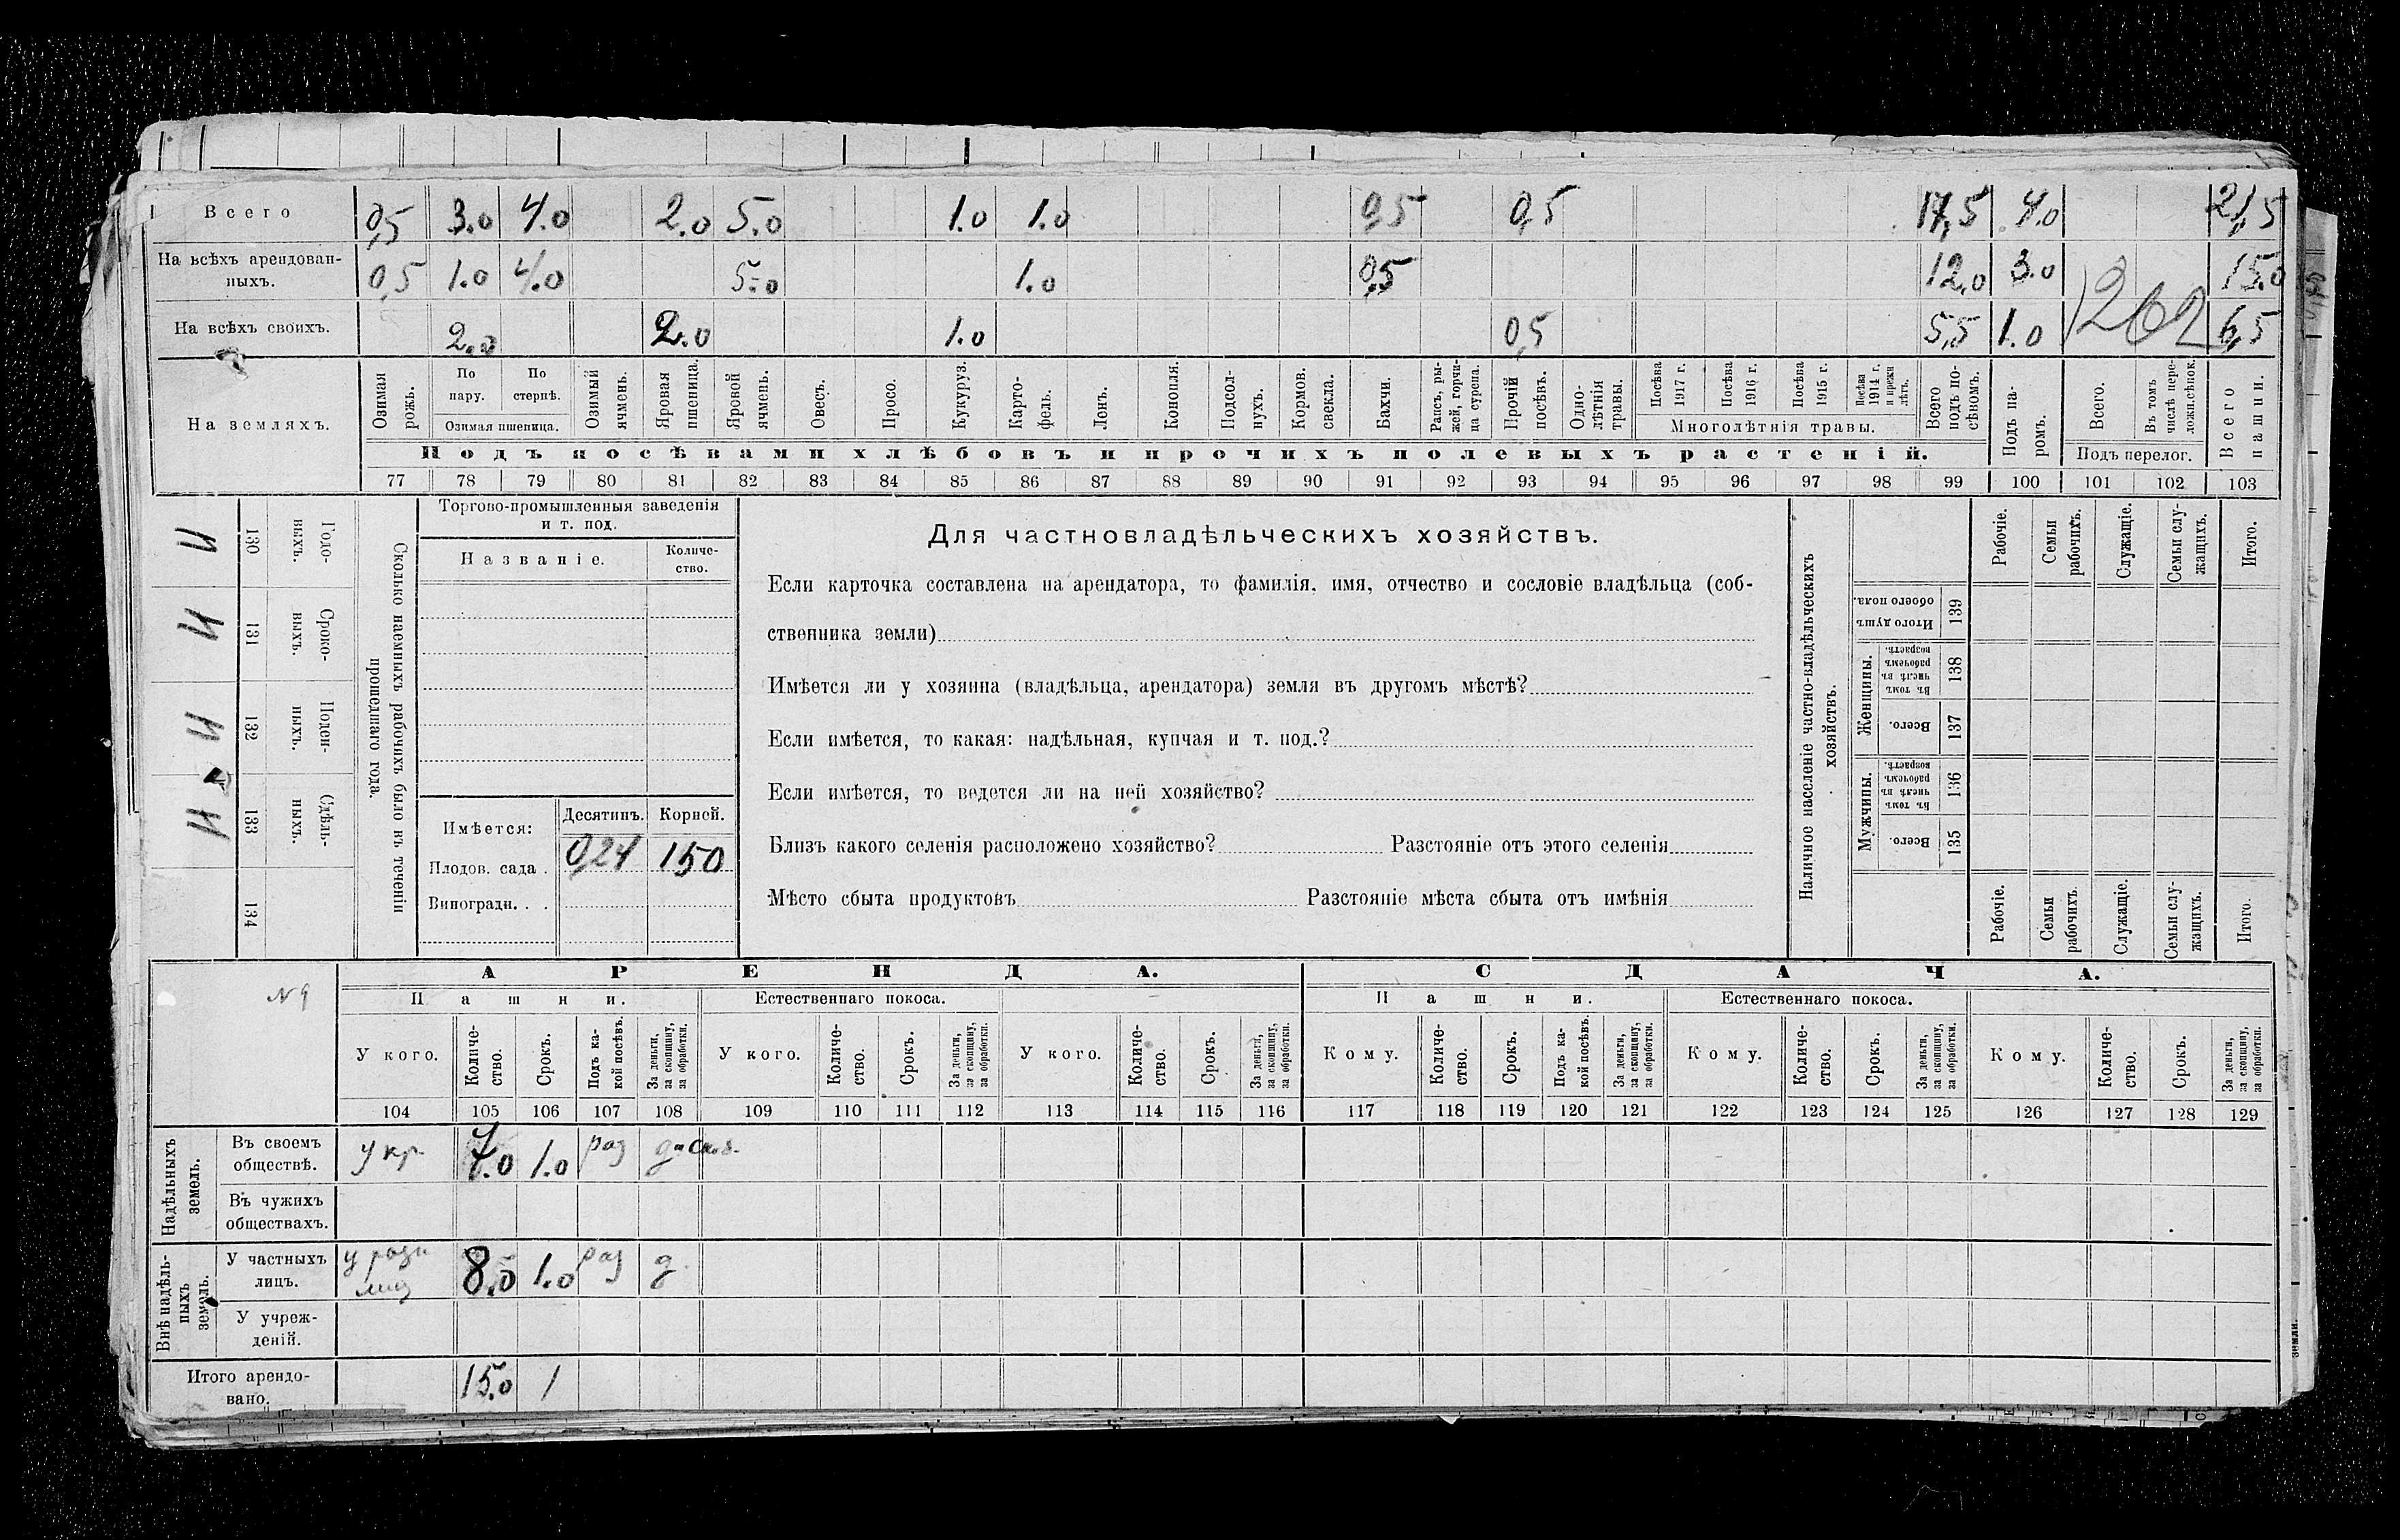 Всего 0,5 3.0 4.0 2.0 5.0 1.0 1.0 0,5 0,5 17,5 4.0 21,5
На всѣхъ арендован-
ныхъ. 0,5 1.0 4.0 5.0 1.0 0,5 12.0 3.0 15.0
На всѣхъ своихъ. 2.0 2.0 1.0 0,5 5,5 1.0 262 6,5
На земляхъ.
Озимая рожь.
По пару.
По стернѣ.
Озимая пшеница.
Озимый ячмень.
Яровая пшеница.
Яровой ячмень.
Овесъ.
Просо.
Кукуруз.
Карто-
фель.
Ленъ.
Конопля.
Подсол-
нухъ.
Кормов.
свекла.
Бахчи.
Рапсъ, ры-
жей, горчи-
ца сурепа.
Прочій
посѣвъ.
Одно-
лѣтнія
травы.
Посѣва
1917 г.
Посѣва
1916 г.
Посѣва
1915 г.
Посѣва
1914 г.
и прежн
лѣтъ.
Многолѣтнія травы.
Всего
подъ по-
сѣвомъ.
Подъ па-
ромъ.
Всего.
Въ томъ
числѣ пере-
ложн.сѣнок.
Подъ перелог.
Всего
пашни.
Подъ посѣвами хлѣбовъ и прочихъ полевыхъ растеній.
77 78 79 80 81 82 83 84 85 86 87 88 89 90 91 92 93 94 95 96 97 98 99 100 101 102 103
Сколько наемныхъ рабочихъ было въ теченіи
прошедшаго года.
Годо-
выхъ.
130
И
Сроко-
выхъ.
131
И
Поден-
ныхъ.
132
И
Сдѣль-
ныхъ.
133
И
134
Торгово-промышленныя заведенія
и т. под.
Названіе.
Количе-
ство.
Имѣется:
Десятинъ. Корней.
Плодов. сада . 0,24 150
Виноградн. . .
Для частновладѣльческихъ хозяйствъ.
Если карточка составлена на арендатора, то фамилія, имя, отчество и сословіе владѣльца (соб-
ственника земли)
Имѣется ли у хозяина (владѣльца, арендатора) земля въ другомъ мѣстѣ?
Если имѣется, то какая: надѣльная, купчая и т. под.?
Если имѣется, то ведется ли на ней хозяйство?
Близъ какого селенія расположено хозяйство? Разстояніе отъ этого селенія
Мѣсто сбыта продуктовъ Разстояніе мѣста сбыта отъ имѣнія
Наличное населеніе частно-владѣльческихъ
хозяйствъ.
Рабочіе.
Семьи
рабочихъ.
Служащіе.
Семьи слу-
жащихъ.
Итого.
Итого душъ
обоего пола.
139
Женщины.
Въ томъ
числѣ въ
рабочемъ
возрастѣ.
138
Всего.
137
Мужчины.
Въ томъ
числѣ въ
рабочемъ
возрастѣ.
136
Всего.
135
Рабочіе.
Семьи
рабочихъ
Служащіе.
Семьи слу-
жащихъ.
Итого.
N 9
АРЕНДА.
СДАЧА.
Пашни. Естественнаго покоса. Пашни. Естественнаго покоса.
У кого.
Количе-
ство.
Срокъ.
Подъ ка-
кой посѣвъ.
За деньги,
за скопщину,
за обработки.
У кого.
Количе-
ство.
Срокъ.
За деньги,
за скопщину,
за обработки.
У кого.
Количе-
ство.
Срокъ.
За деньги,
за скопщину,
за обработки.
Кому.
Количе-
ство.
Срокъ.
Подъ ка-
кой посѣвъ.
За деньги,
за скопщину,
за обработки.
Кому.
Количе-
ство.
Срокъ.
За деньги,
за скопщину,
за обработки.
Кому.
Количе-
ство.
Срокъ.
За деньги,
за скопщину,
за обработки.
104 105 106 107 108 109 110 111 112 113 114 115 116 117 118 119 120 121 122 123 124 125 126 127 128 129
Надѣльныхъ
земель.
Въ своемъ
обществѣ. у кр. 7.0 1.0 раз
Въ чужихъ
обществахъ.
Внѣ надѣль-
ныхъ
земель.
У частныхъ
лицъ. 8.0 1.0 раз д.
У учреж-
деній.
Итого арендо-
вано. 15.0 1
земли.